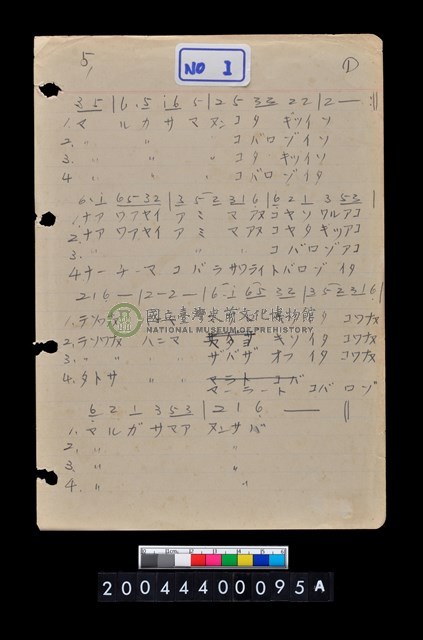 5,
NO 1
①
3 5 | 6 . 5 i 6 5 | 2 5 3 2 2 2 | 2 — :||
1. マ ル ガ サ マ ヌン コ タ ギ ツイ ソ
2. 〃 〃 〃 コ バ ロ ゾ イ ソ
3. 〃 〃 〃 コ タ ギ ツイ ソ
4. 〃 〃 〃 コ バ ロ ゾ イ タ
6 . i 6 5 3 2 | 3 5 2 3 1 6 | 6 2 1 3 5 3 |
1. ナア ワアヤイ ア ミ マ アヌ コ ヤ ソ ワル アコ
2. ナア ワアヤイ ア ミ マ アヌ コ ヤ タ ギツ アコ
3. 〃 〃 〃 〃 コ バ ロ ゾ アコ
4 ナー チーマ コ バ ラ サワライト バ ロ ゾ イ タ
2 1 6 — | 2 — 2 — | 6 . i 6 5 3 2 | 3 5 2 3 1 6 |
國立臺灣史前文化博物館
NATIONAL MUSEUM OF PREHISTORY
タ コワナヌ
2. ラン ワナヌ ハ ニ マ キ ソ イ タ コワナヌ
3. 〃 〃 〃 サ バ ザ オ フ イ タ コワナヌ
4. タ ト サ 〃 マ ラー ト コ バ
マー ラー ト コ バ ロ ゾ
6 2 1 3 5 3 | 2 1 6 — ||
1. マ ル ガ サ マ ア ヌン サ バ
2. 〃 〃
3. 〃 〃
4. 〃 〃
2004440095A